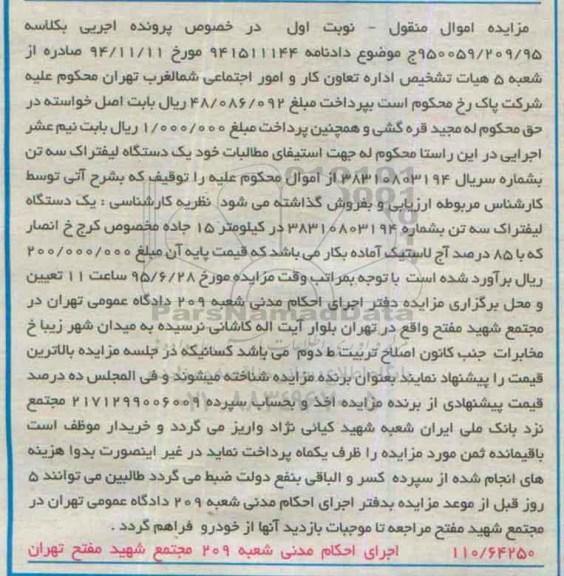 مزایده اموال منقول - نوبت اول در خصوص پرونده اجریی بکلاسه
۹۵۰۰۵۹/۲۰۹/۹۵ج موضوع دادنامه ۹۴۱۵۱۱۱۴۴ مورخ ۹۴/۱۱/۱۱ صادره از
شعبه ۵ هیات تشخیص اداره تعاون کار و امور اجتماعی شمالغرب تهران محکوم علیه
شرکت پاک رخ محکوم است بپرداخت مبلغ ۴۸/۰۸۶/۰۹۲ ریال بابت اصل خواسته در
حق محکوم له مجید قره گشی و همچنین پرداخت مبلغ ۱/۰۰۰/۰۰۰ ریال بابت نیم عشر
اجرایی در این راستا محکوم له جهت استیفای مطالبات خود یک دستگاه لیفتراک سه تن
بشماره سریال ۳۸۳۱۰۸۰۳۱۹۴ از اموال محکوم علیه را توقیف که بشرح آتی توسط
کارشناس مربوطه ارزیابی و بفروش گذاشته می شود نظریه کارشناسی : یک دستگاه
لیفتراک سه تن بشماره ۳۸۳۱۰۸۰۳۱۹۴ در کیلومتر ۱۵ جاده مخصوص کرج خ انصار
که با ۸۵ درصد آج لاستیک آماده بکار می باشد که قیمت پایه آن مبلغ ۲۰۰/۰۰۰/۰۰۰
ریال برآورد شده است با توجه بمراتب وقت مزایده مورخ ۹۵/۶/۲۸ ساعت ۱۱ تعیین
و محل برگزاری مزایده دفتر اجرای احکام مدنی شعبه ۲۰۹ دادگاه عمومی تهران در
ParsNamadData
مجتمع شهید مفتح واقع در تهران بلوار آیت اله کاشانی نرسیده به میدان شهر زیبا خ
مخابرات جنب کانون اصلاح تربیت ط دوم می باشد کسانیکه در جلسه مزایده بالاترین
قیمت را پیشنهاد نمایند بعنوان برنده مزایده شناخته میشوند و فی المجلس ده درصد
قیمت پیشنهادی از برنده مزایده اخذ و بحساب سپرده ۲۱۷۱۲۹۹۰۰۶۰۰۹ مجتمع
نزد بانک ملی ایران شعبه شهید کیانی نژاد واریز می گردد و خریدار موظف است
باقیمانده ثمن مورد مزایده را ظرف یکماه پرداخت نماید در غیر اینصورت بدوا هزینه
های انجام شده از سپرده کسر و الباقی بنفع دولت ضبط می گردد طالبین می توانند ۵
روز قبل از موعد مزایده بدفتر اجرای احکام مدنی شعبه ۲۰۹ دادگاه عمومی تهران در
مجتمع شهید مفتح مراجعه تا موجبات بازدید آنها از خودرو فراهم گردد .
۱۱۰/۶۴۲۵۰ اجرای احکام مدنی شعبه ۲۰۹ مجتمع شهید مفتح تهران